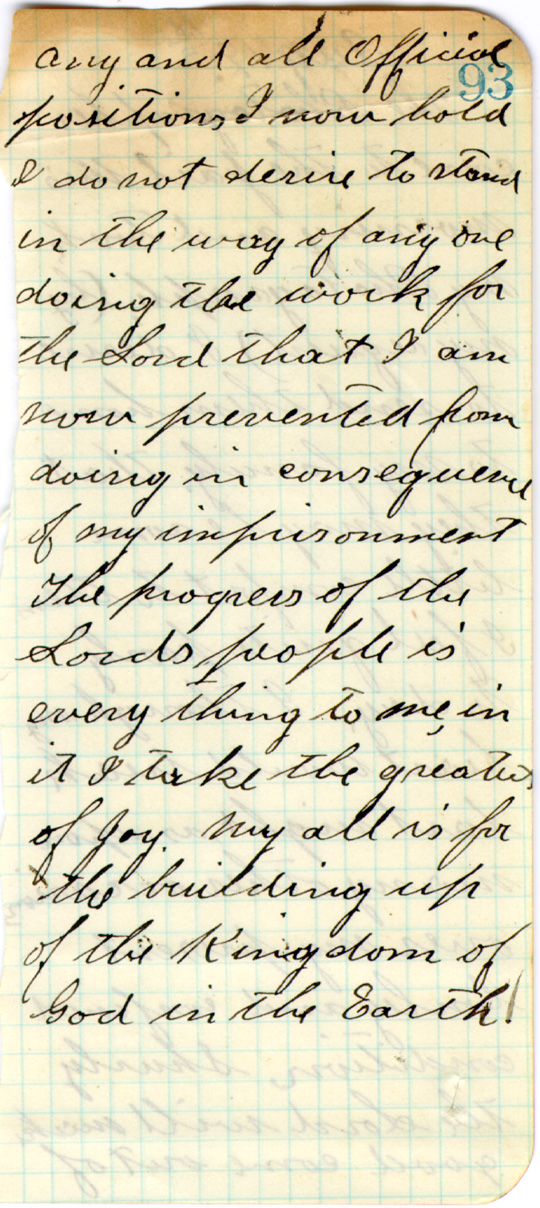 any and all Official
93
positions I now hold
I do not desire to stand
in the way of any one
doing the work for
the Lord that I am
now prevented from
doing in consequence
of my imprisonment
The progress of the
Lords people is
every thing to me, in
it I take the greatest
of Joy. My all is for
the building up
of the Kingdom of
God in the Earth!